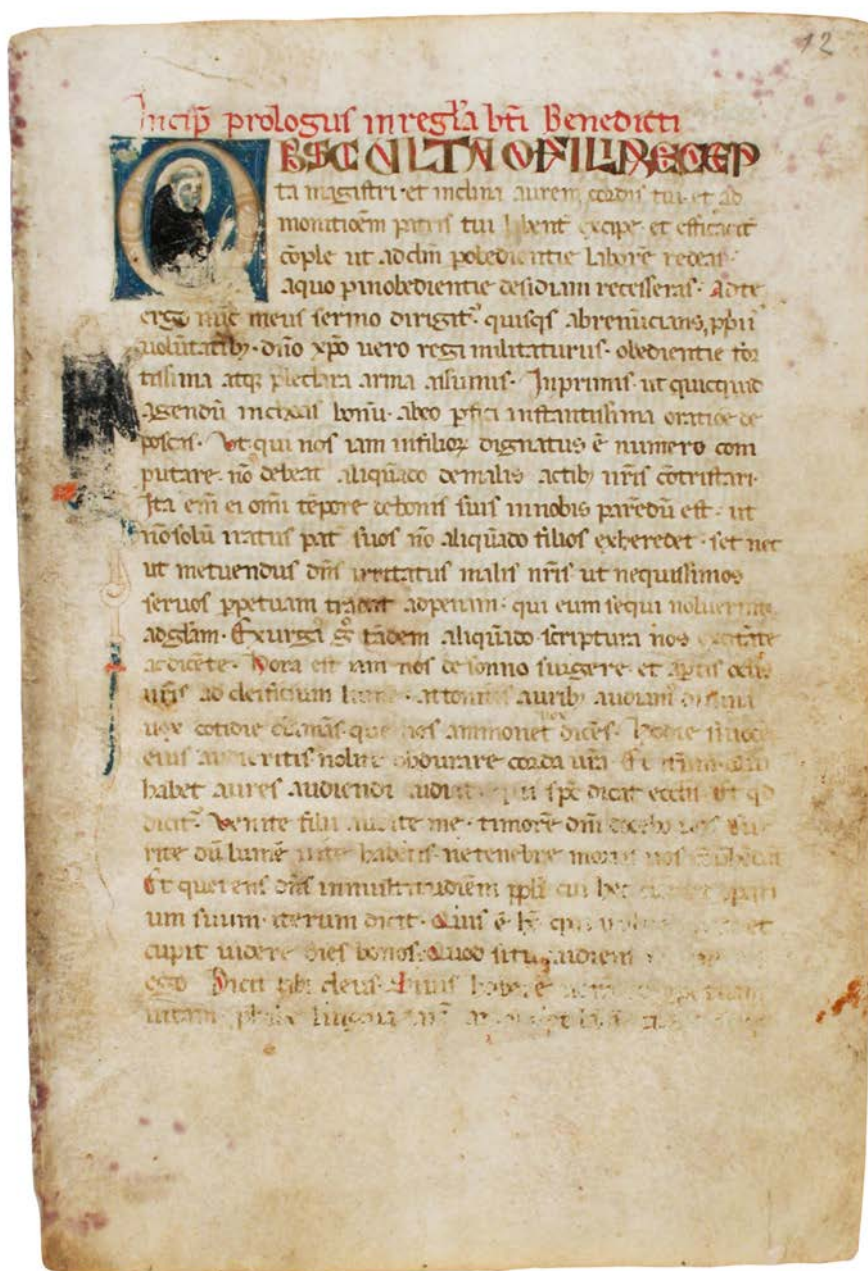 12
Incip̄ prologus in regl̄a bt̄i Benedicti
OBSCULTA O FILI PRECEP
ta magistri· et inclina aurem cordis tui· et ad
monitioem̄ patris tui libent̄ excipe· et efficacit̄
cōple ut ad eum̄ p obedientie laborē redeas·
a quo p inobedientie desidiam recesseras· Ad te
ergo nūc meus sermo dirigit᷑· quisqs abrenūcians, ppriis
uolūtatib; dn̄o xp̄o uero regi militaturus· obedientie for
tissima atq; preclara arma assumis· Inprimis· ut quicquid
agendū inchoas bonū· ab eo pfici instantissima oratiōe de
poscas· Ut qui nos iam in filioꝝ dignatus ē numero com
putare· nō debeat aliquādo de malis actib; nr̄is cōtristari·
Ita em̄ ei omī tēpore de bonis suis in nobis parēdū est· ut
nō solū iratus pat̄ suos nō aliquādo filios exheredet· set nec
ut metuendus dn̄s irritatus malis nr̄is ut nequissimos
seruos ppetuam tradat ad penam· qui eum sequi noluerint
ad glam̄· Exurgam̄ g͛ tādem aliquādo scriptura nos excitāte
ac dicēte· Hora est iam nos de somno surgere· et aptis oculis
nr̄is ad deificum lumē· attonitis aurib; audiam̄ diuina
uox cotidie clamās· que nos ammonet dicēs· Hodie si uocē
eius audieritis nolite obdurare corda ur̄a· Et
habet aures audiendi audiat· spc̄ dicat eccl̄iis· Et qd
dicit᷑· Venite filii audite me· timorē dn̄i docebo uos· Cur
rite dū lumē uite habetis· ne tenebre mortis uos
Et querens dn̄s in multitudiēm ppl̄i cui hec opari
um suum· iterum dicit· Quis ē hō qui uult et
cupit uidere dies bonos· Quod si tu audiens
ego Dicit tibi deus· Si uis habere
uitam phibe linguā tuā a malo et